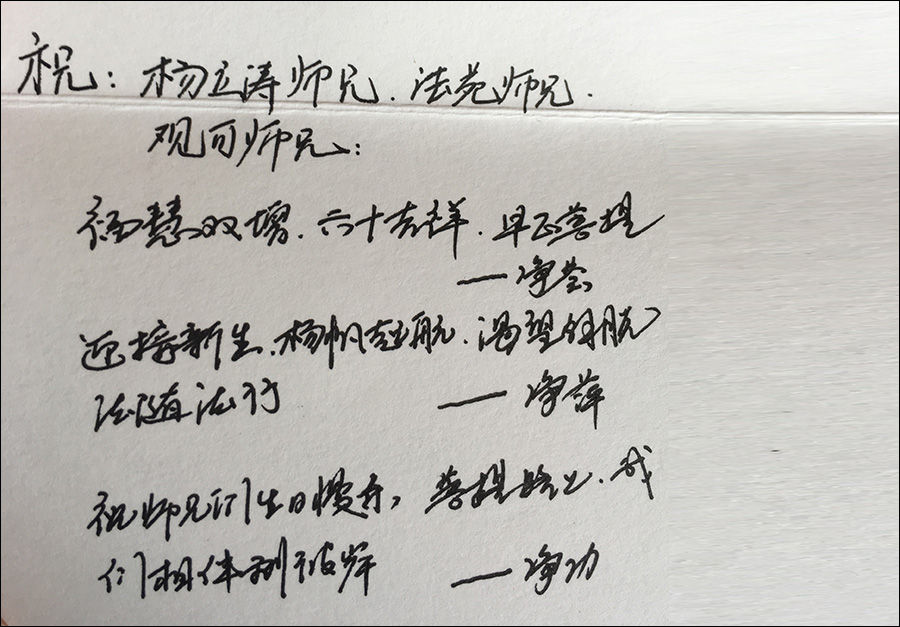 祝：杨立涛师兄．法苑师兄．
观可师兄：
福慧双增．六十吉祥．早正菩提
——净芸
迎接新生．杨帆起航．渴望解脱
法随法行
——净萍
祝师兄们生日快乐，菩提路上．我
们相伴到彼岸
——净功